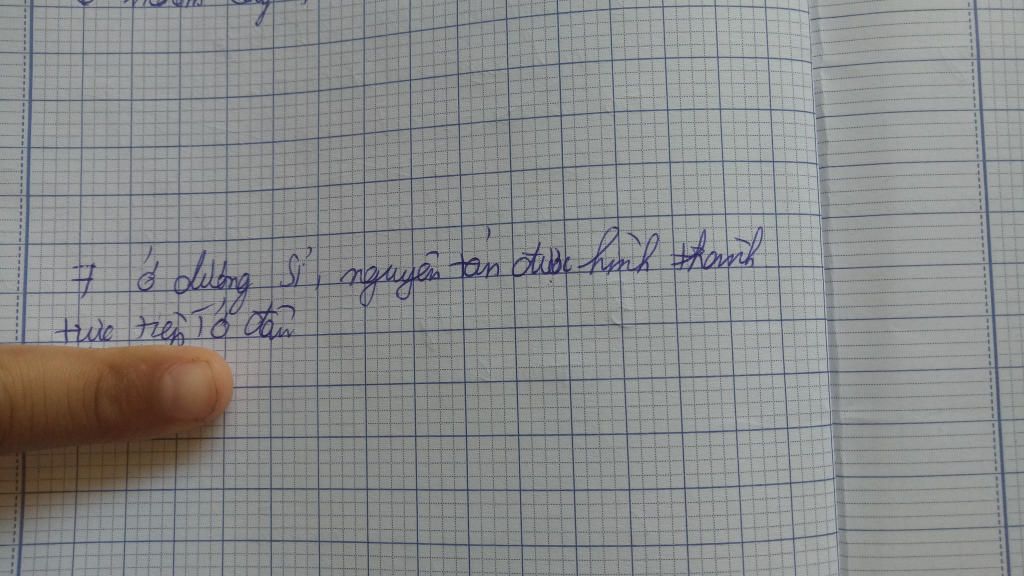 7 ở dương sỉ, nguyên tản được hình thành
trực tiếp Từ đâu